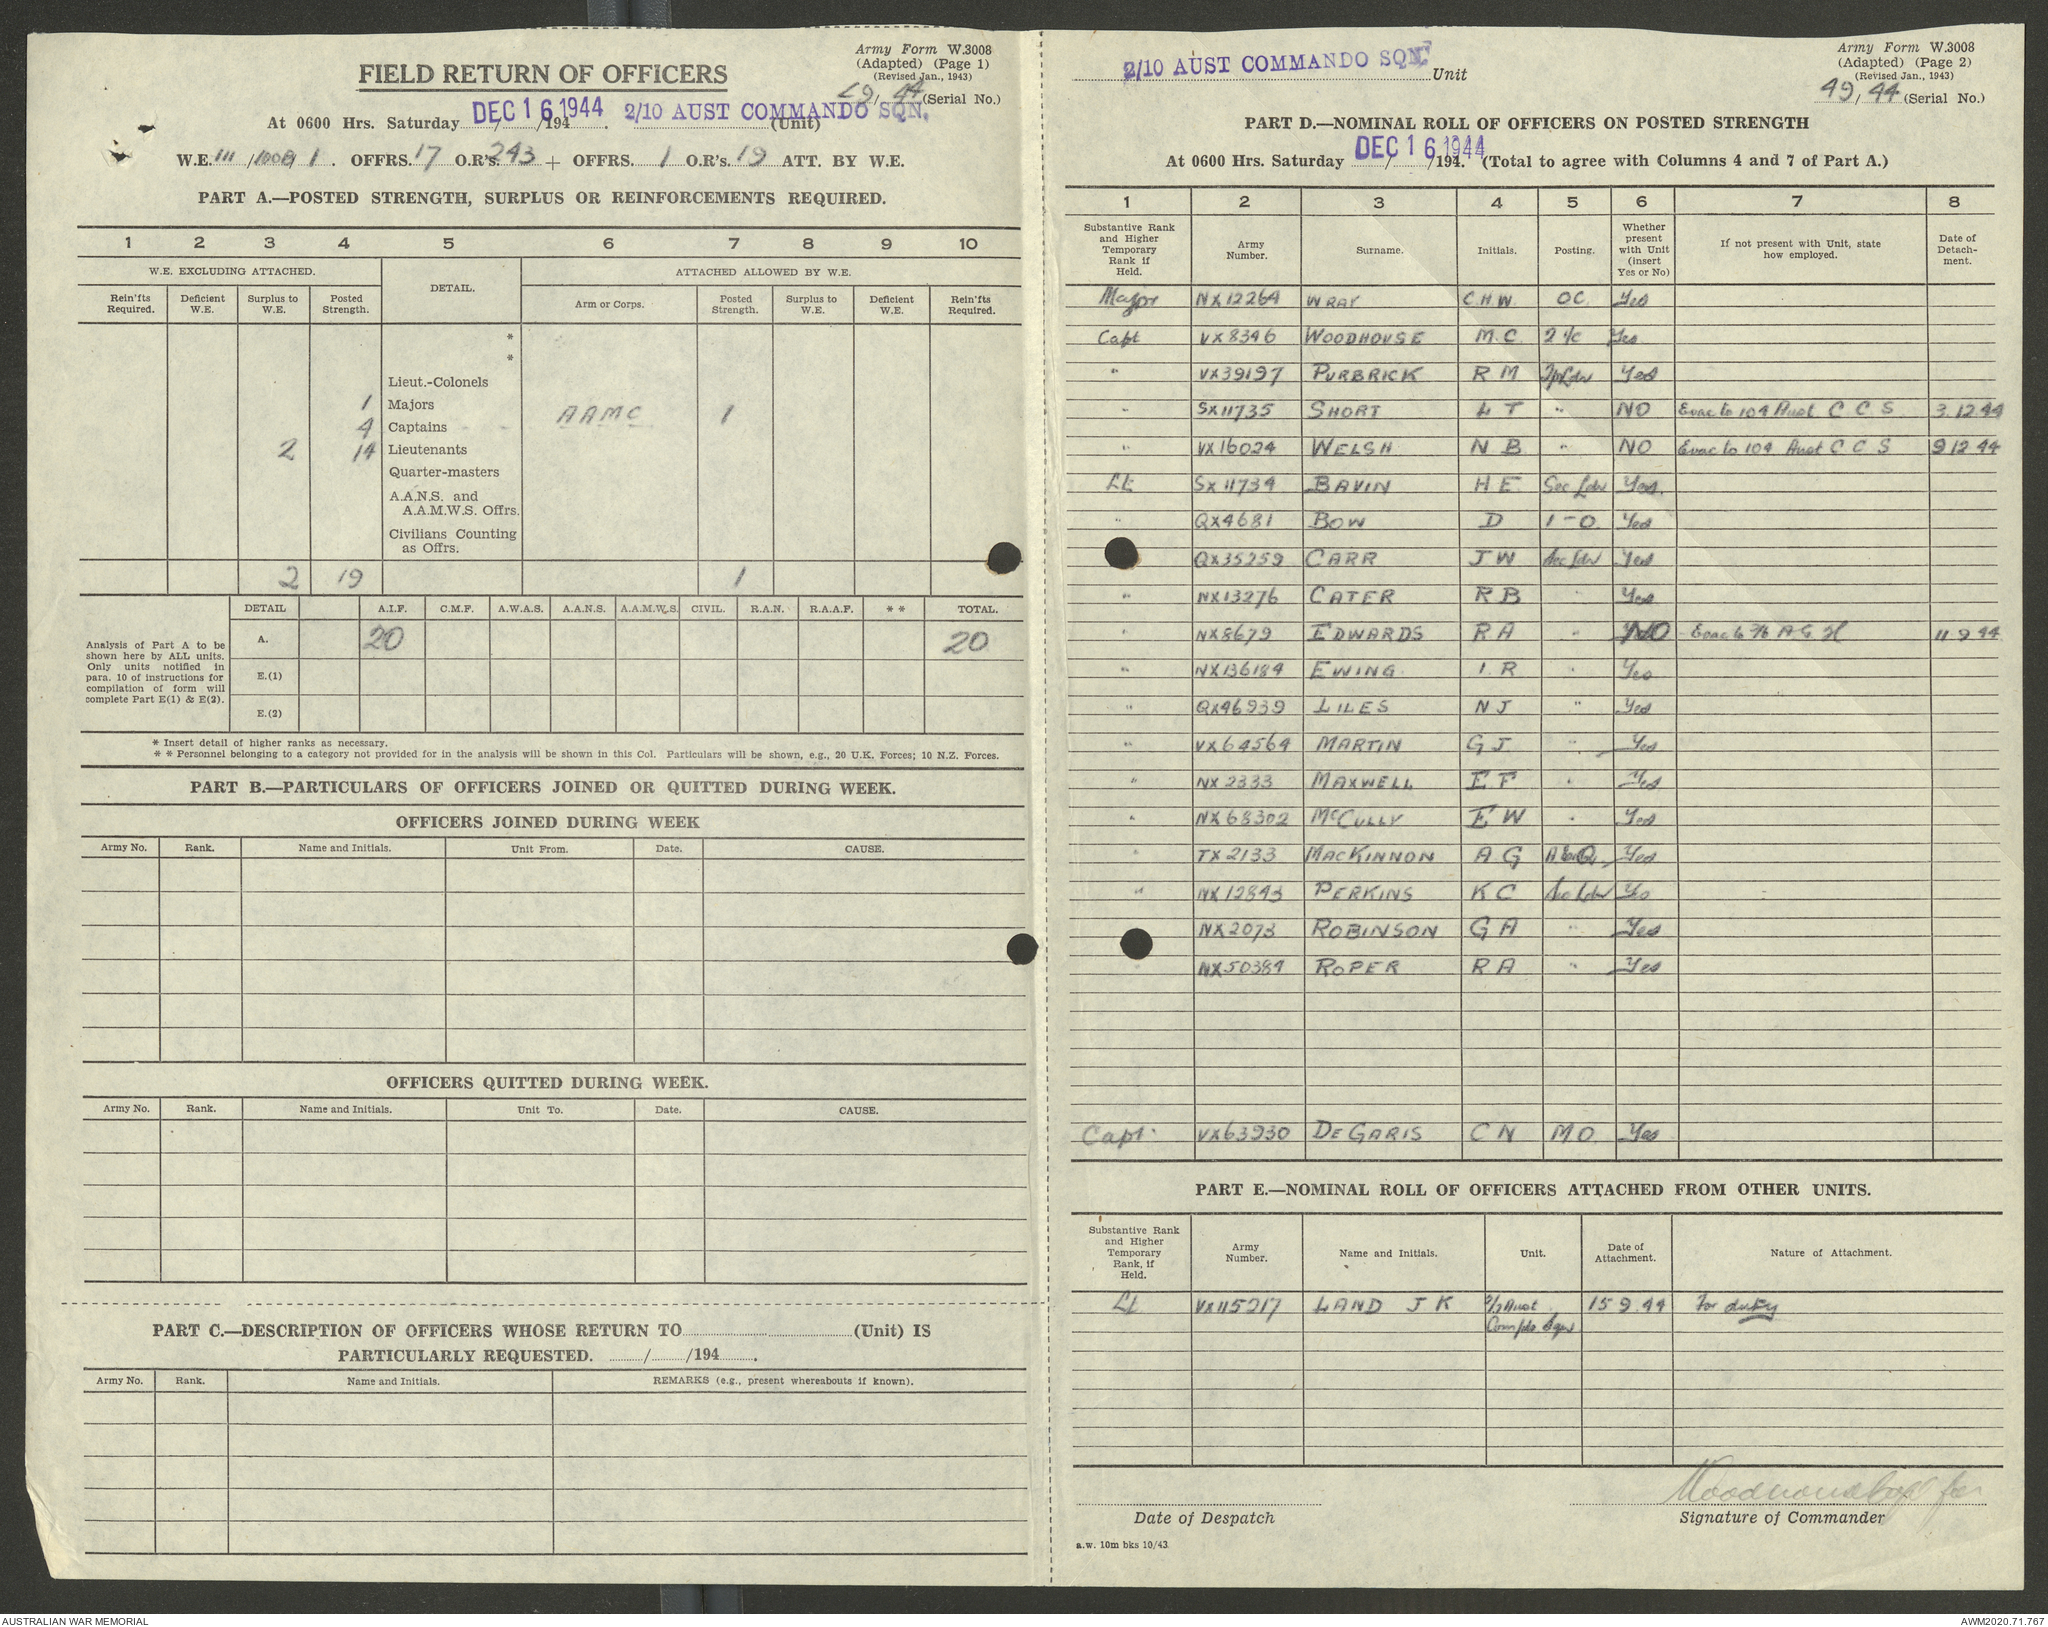 Army Form W.3008
(Adapted) (Page 1)
(Revised Jan., 1943)
FIELD RETURN OF OFFICERS
49/44 (Serial No.)
At 0600 Hrs. Saturday DEC 16 1944 /194 . 2/10 AUST COMMANDO SQN. (Unit)
W.E. III / 1 . OFFRS. 17 O.R's. 243 + OFFRS. 1 O.R's. 19 ATT. BY W.E.
PART A.—POSTED STRENGTH, SURPLUS OR REINFORCEMENTS REQUIRED.
1 2 3 4 5 6 7 8 9 10
W.E. EXCLUDING ATTACHED. DETAIL. ATTACHED ALLOWED BY W.E.
Rein'fts Required. Deficient W.E. Surplus to W.E. Posted Strength. Arm or Corps. Posted Strength. Surplus to W.E. Deficient W.E. Rein'fts Required.
*
*
Lieut.-Colonels
1 Majors AAMC 1
4 Captains
2 14 Lieutenants
Quarter-masters
A.A.N.S. and
A.A.M.W.S. Offrs.
Civilians Counting
as Offrs.
2 19 1
DETAIL A.I.F. C.M.F. A.W.A.S. A.A.N.S. A.A.M.W.S. CIVIL. R.A.N. R.A.A.F. * * TOTAL.
Analysis of Part A to be
shown here by ALL units.
Only units notified in
para. 10 of instructions for
compilation of form will
complete Part E(1) & E(2).
A. 20 20
E.(1)
E.(2)
* Insert detail of higher ranks as necessary.
* * Personnel belonging to a category not provided for in the analysis will be shown in this Col. Particulars will be shown, e.g., 20 U.K. Forces; 10 N.Z. Forces.
PART B.—PARTICULARS OF OFFICERS JOINED OR QUITTED DURING WEEK.
OFFICERS JOINED DURING WEEK
Army No. Rank. Name and Initials. Unit From. Date. CAUSE.
OFFICERS QUITTED DURING WEEK.
Army No. Rank. Name and Initials. Unit To. Date. CAUSE.
PART C.—DESCRIPTION OF OFFICERS WHOSE RETURN TO (Unit) IS
PARTICULARLY REQUESTED. / /194 .
Army No. Rank. Name and Initials. REMARKS (e.g., present whereabouts if known).
Army Form W.3008
(Adapted) (Page 2)
(Revised Jan., 1943)
2/10 AUST COMMANDO SQN. Unit
49/44 (Serial No.)
PART D.—NOMINAL ROLL OF OFFICERS ON POSTED STRENGTH
At 0600 Hrs. Saturday DEC 16 1944 /194 . (Total to agree with Columns 4 and 7 of Part A.)
1 2 3 4 5 6 7 8
Substantive Rank and Higher Temporary Rank if Held. Army Number. Surname. Initials. Posting. Whether present with Unit (insert Yes or No) If not present with Unit, state how employed. Date of Detach-ment.
Major NX12264 WRAY C.H.W. OC Yes
Capt VX8346 WOODHOUSE M.C. 2 i/c Yes
" VX39197 PURBRICK R M Tp Ldr Yes
" SX11735 SHORT L T " NO Evac to 104 Aust C C S 3.12.44
" VX16024 WELSH N B " NO Evac to 104 Aust C C S 9 12 44
Lt SX11734 BAVIN H E Sec Ldr Yes
" QX4681 BOW D I-O Yes
QX35259 CARR J W Sec Ldr Yes
" NX13276 CATER R B " Yes
" NX8679 EDWARDS R A " NO Evac to 2/6 A G H 11 9 44
" NX136184 EWING I R Yes
" QX46939 LILES N J " Yes
" VX64564 MARTIN G J " Yes
" NX2333 MAXWELL E F " Yes
" NX68302 McCULLY E W " Yes
" TX2133 MACKINNON A G Yes
" NX12843 PERKINS K C Sec Ldr Yes
NX2073 ROBINSON G A " Yes
NX50384 ROPER R A " Yes
Capt. VX63930 DE GARIS C N M O Yes
PART E.—NOMINAL ROLL OF OFFICERS ATTACHED FROM OTHER UNITS.
Substantive Rank and Higher Temporary Rank, if Held. Army Number. Name and Initials. Unit. Date of Attachment. Nature of Attachment.
Lt VX115217 LAND J K 2/7 Aust 15 9 44 For duty
Comdo Sqn
Date of Despatch Signature of Commander
a.w. 10m bks 10/43.
AUSTRALIAN WAR MEMORIAL AWM2020.71.767